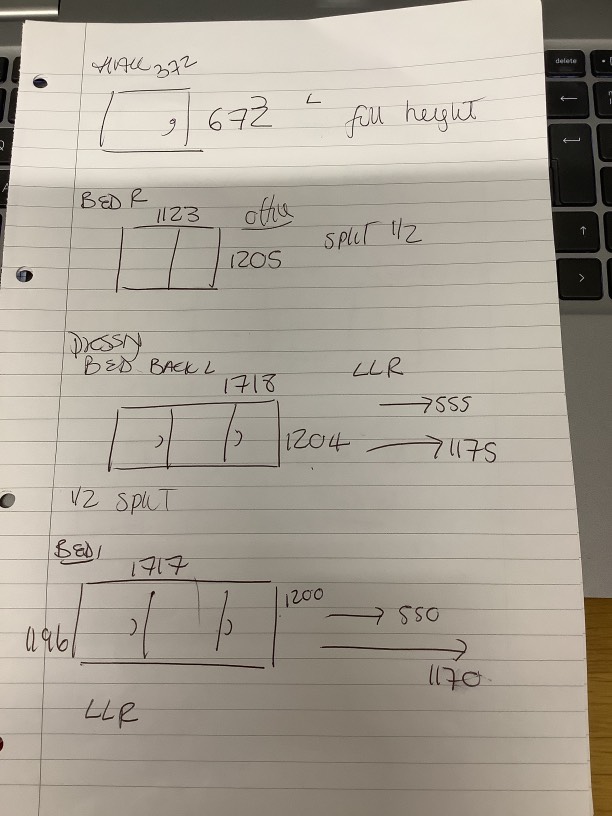 HALL 372
672 L full height
BED R
1123 office
1205 SPLIT 1/2
DRESSN
BED BACK L
1718 LLR
→555
1204 →1175
1/2 SPLIT
BED 1
1717
1200
→ 550
1196
→
1170
LLR
delete